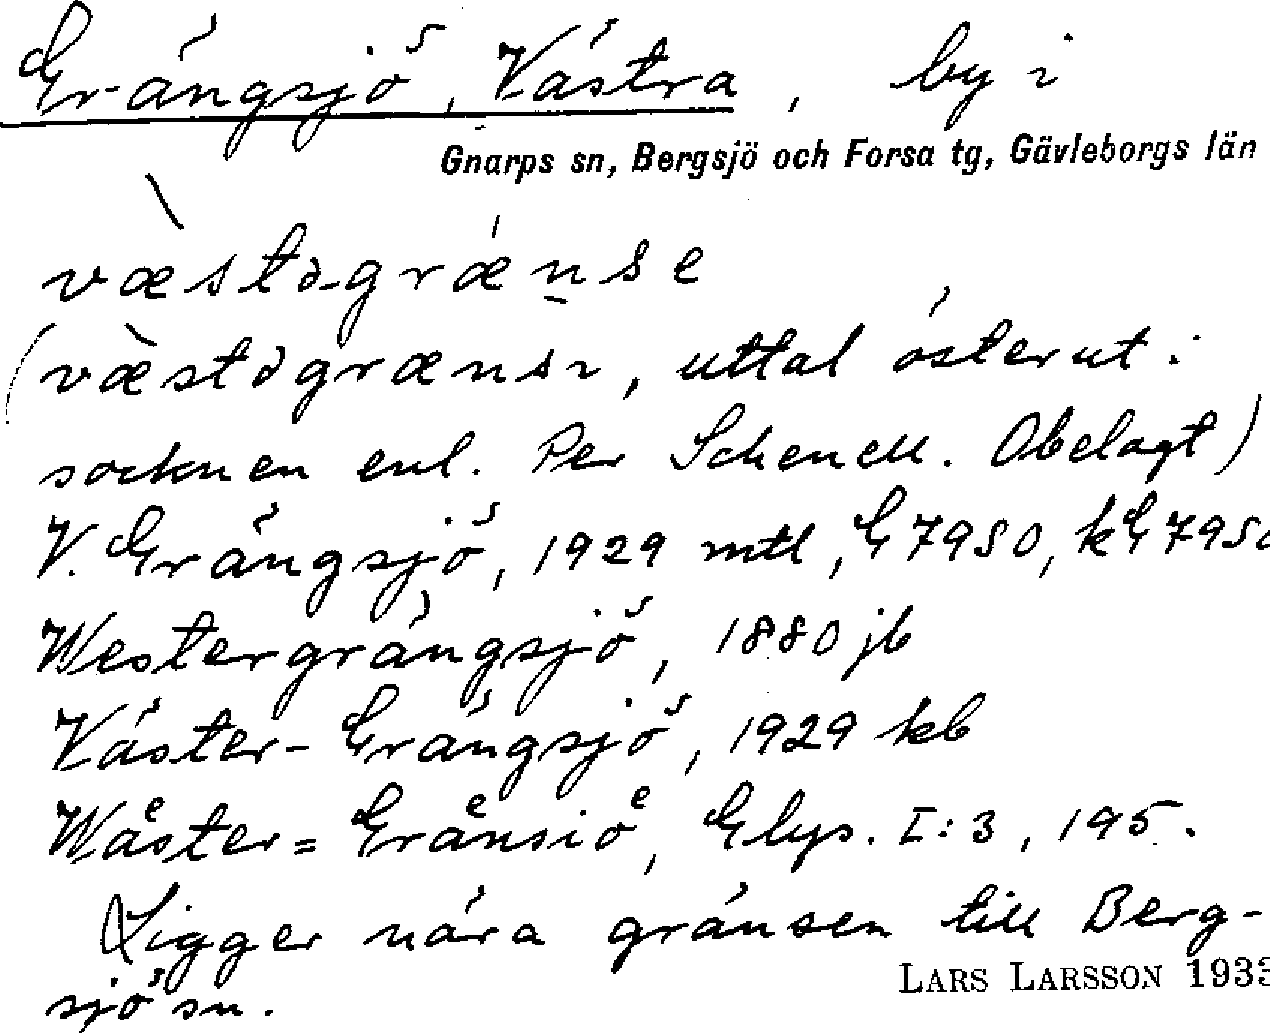 Grängsjö, Västra, by i
Gnarps sn, Bergsjö och Forsa tg, Gävleborgs län
væstəgrænse
(væstəgrænsı, uttal österut i
socknen enl. Per Schenell. Obelagt)
V. Grängsjö, 1929 mtl, G 7950, kG 7950
Westergrängsjö, 1880 jb
Väster-Grängsjö, 1929 kb
Waͤster=Graͤnsioͤ, Glys. I:3, 195.
Ligger nära gränsen till Berg-
sjö sn.
LARS LARSSON 1933